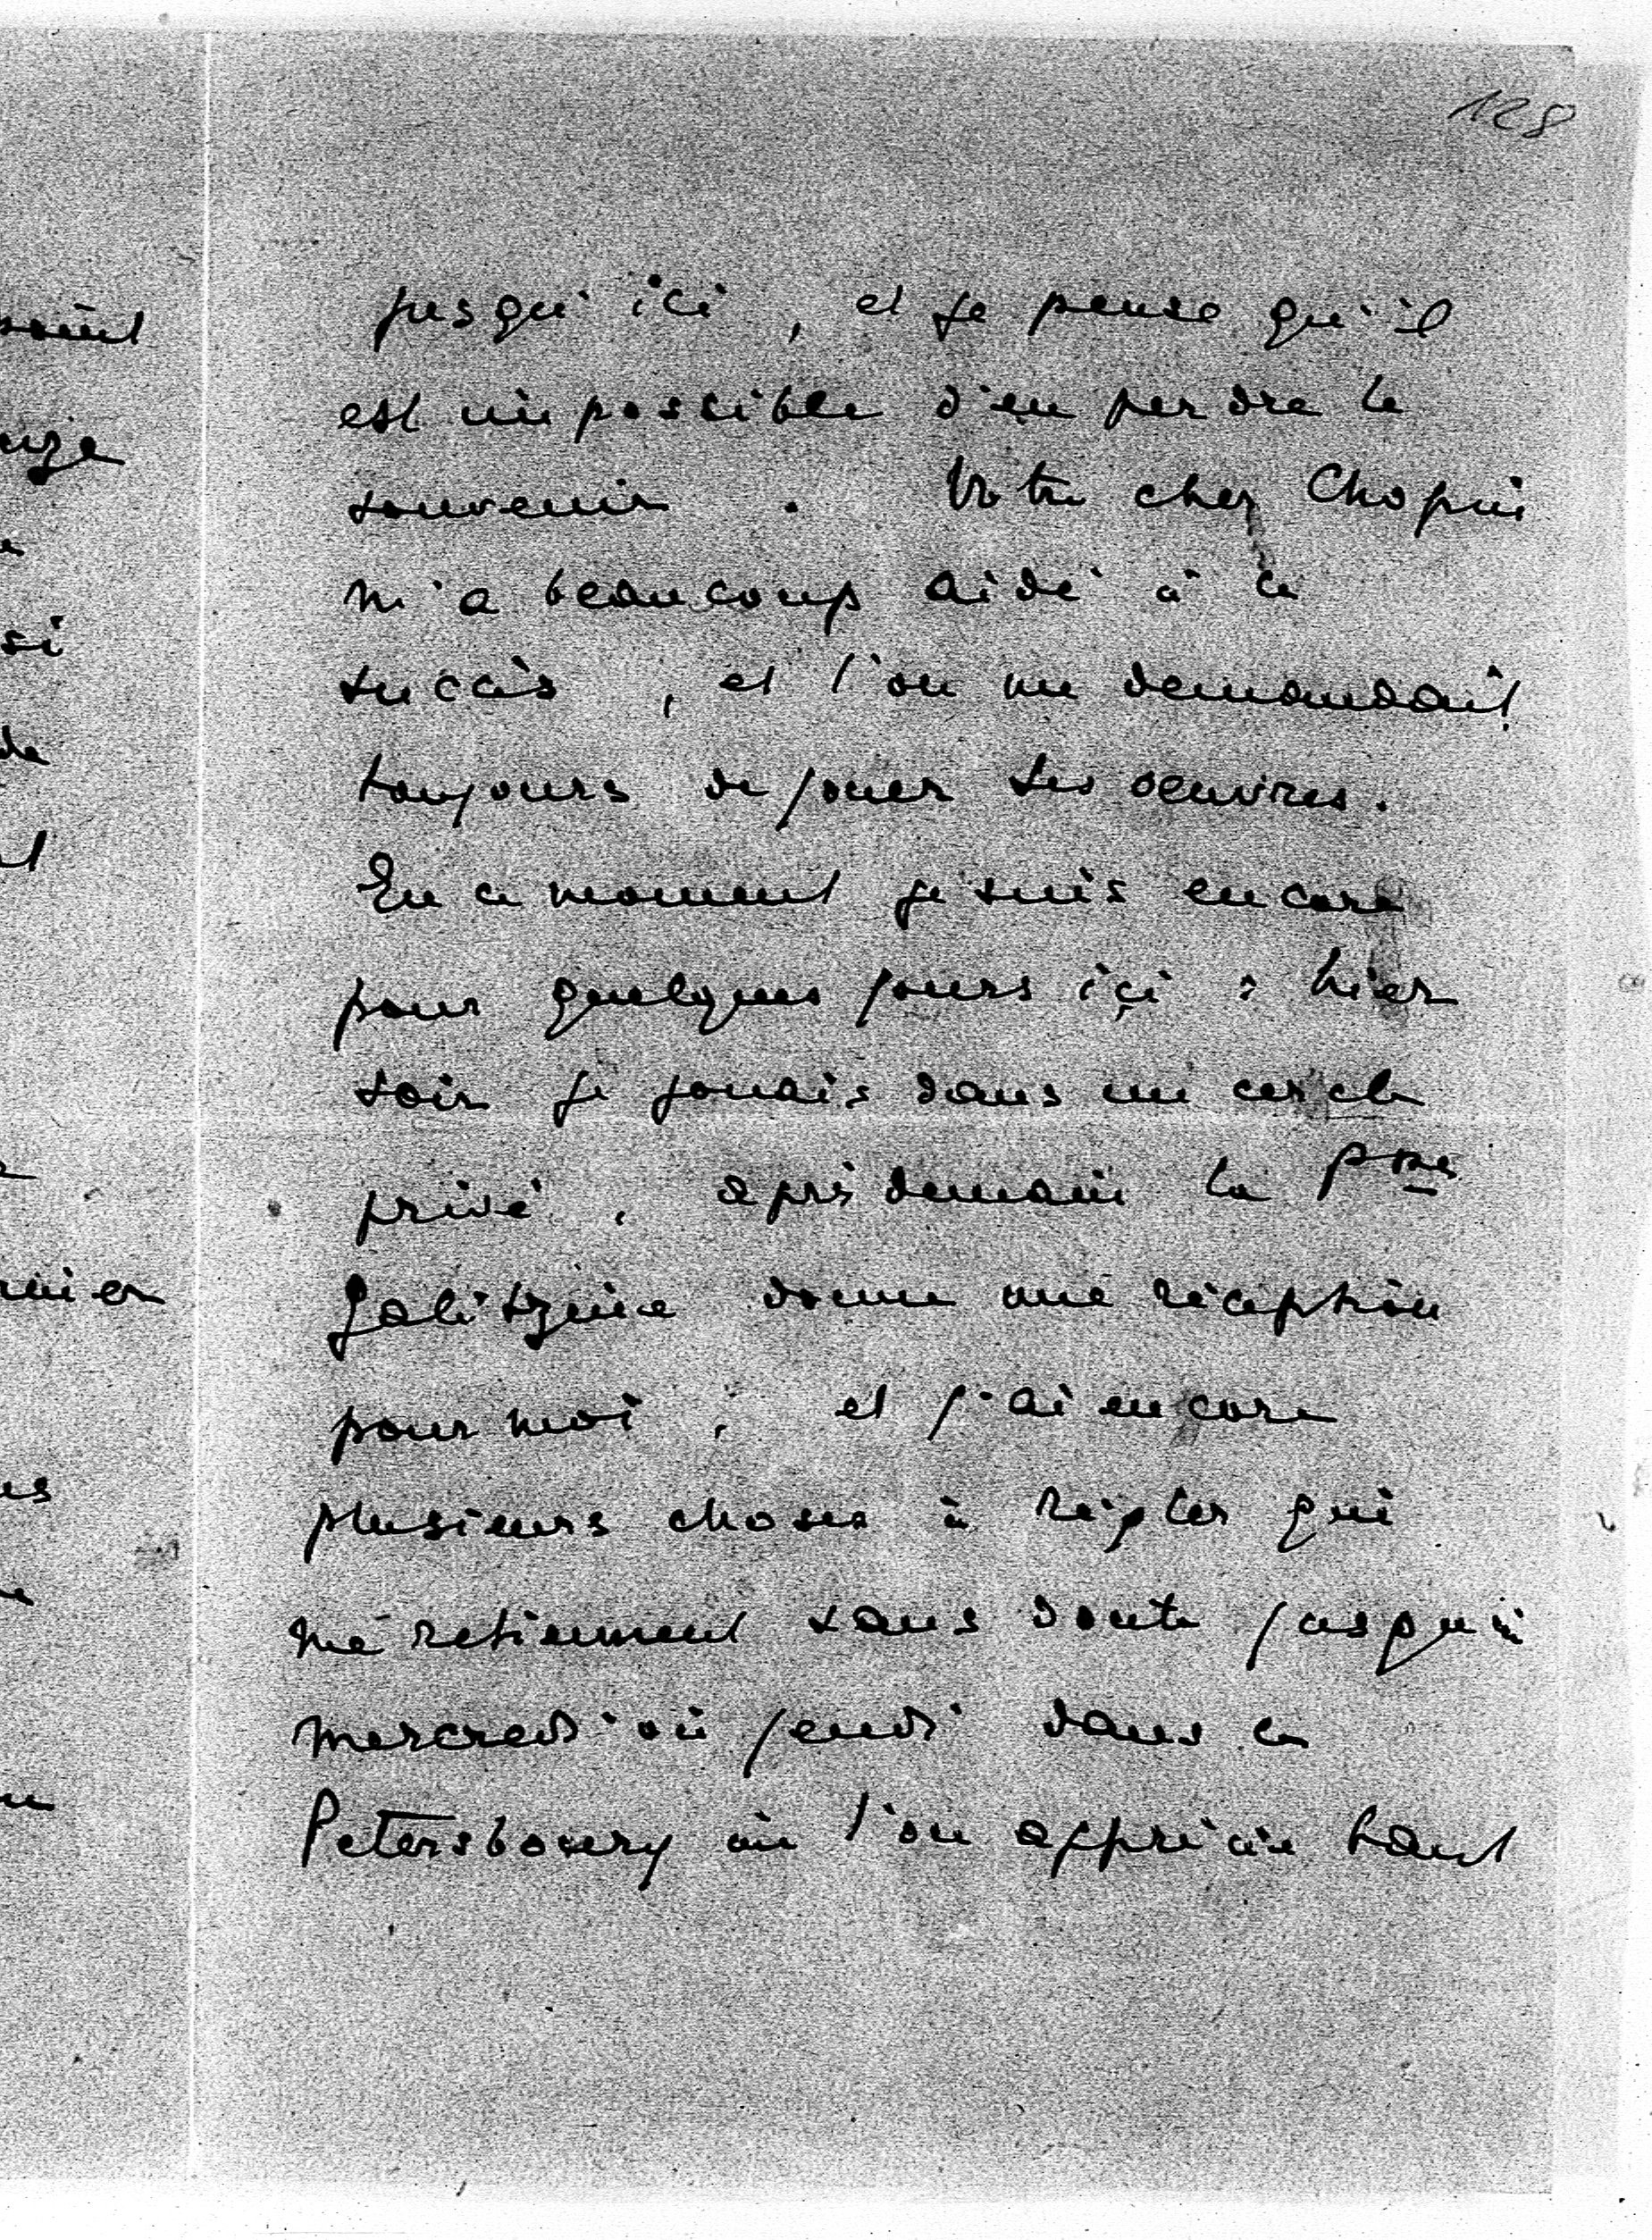 128
jusqu'ici, et je pense qu'il
est impossible d'en perdre le
souvenir. Votre cher Chopin
m'a beaucoup aidé à ce
succès, et l'on me demandait
toujours de jouer ses oeuvres.
En ce moment je suis encore
pour quelques jours ici : hier
soir je jouais dans un cercle
privé, après demain la Psse
Galitzine donne une réception
pour moi, et j'ai encore
plusieurs choses à régler qui
me retiennent sans doute jusqu'à
mercredi ou jeudi dans ce
Petersbourg où l'on apprécie tant
oint
si
de
nier